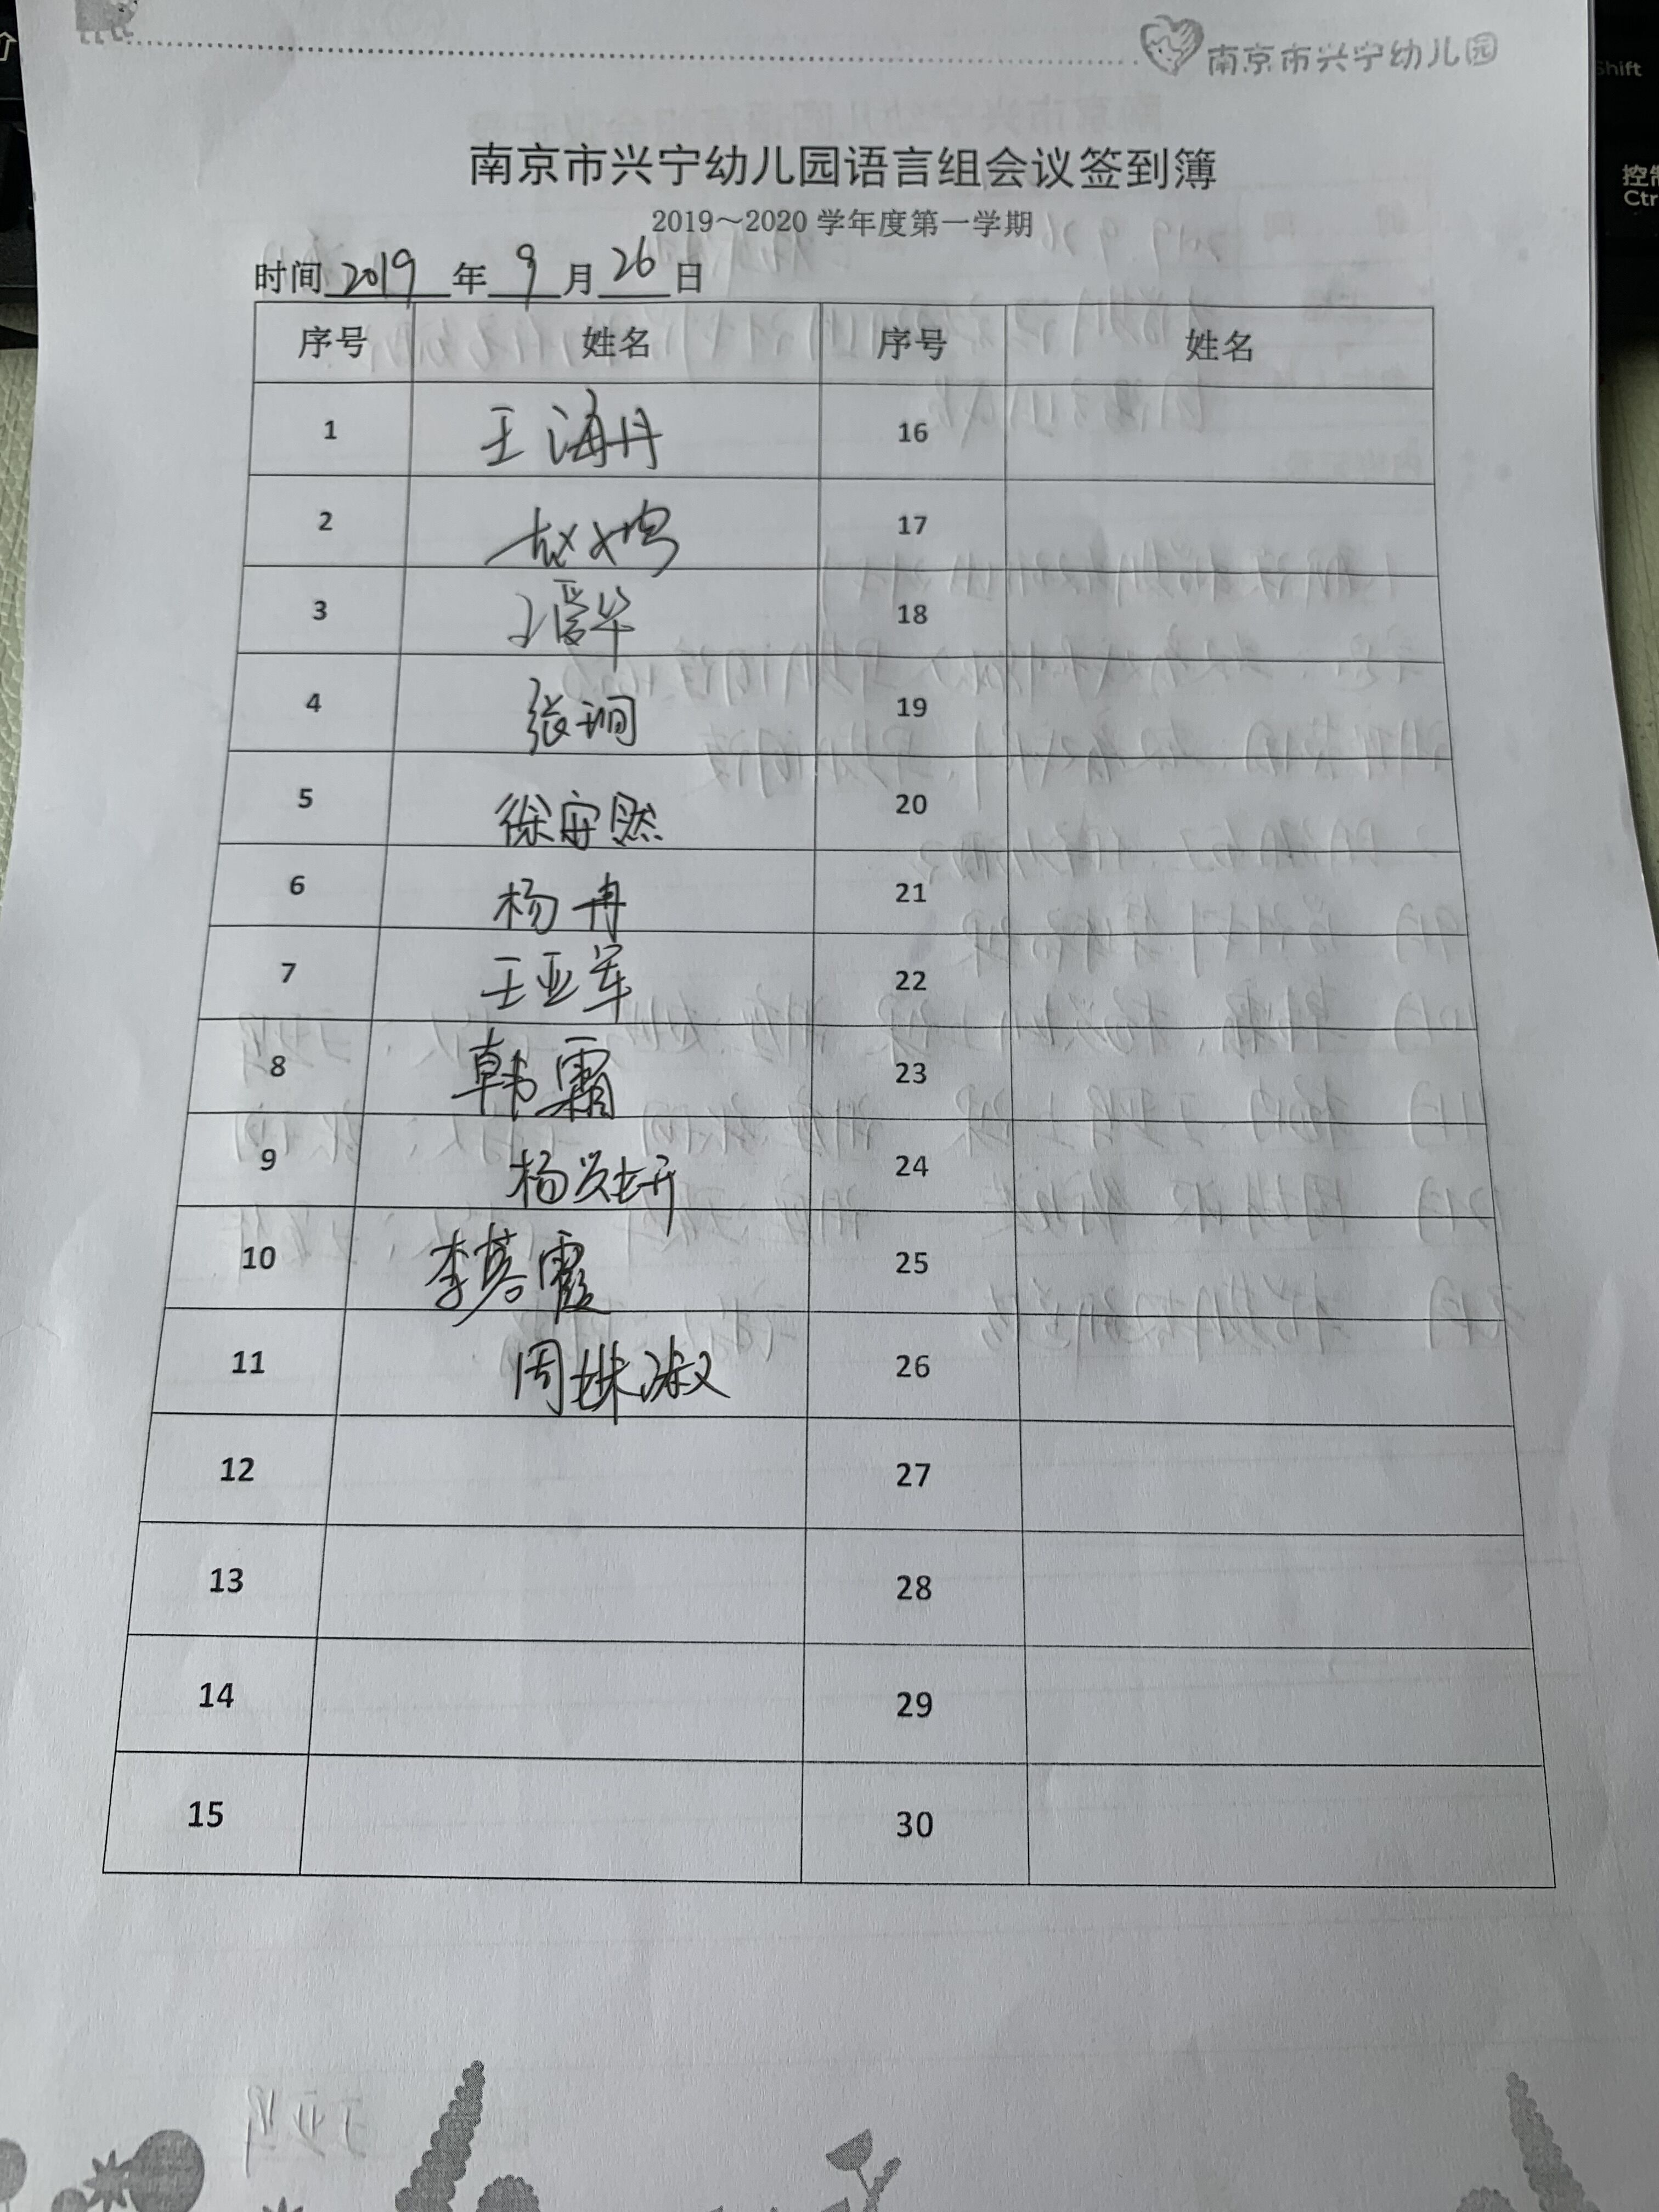 南京市兴宁幼儿园
南京市兴宁幼儿园语言组会议签到簿
2019～2020 学年度第一学期
时间 2019 年 9 月 26 日
序号 姓名 序号 姓名
1 王海丹 16
2 赵 17
3 王爱华 18
4 张珣 19
5 徐安然 20
6 杨冉 21
7 王亚军 22
8 韩霜 23
9 杨兴妍 24
10 李蓉霞 25
11 周姝淑 26
12 27
13 28
14 29
15 30
Shift
控制
Ctr